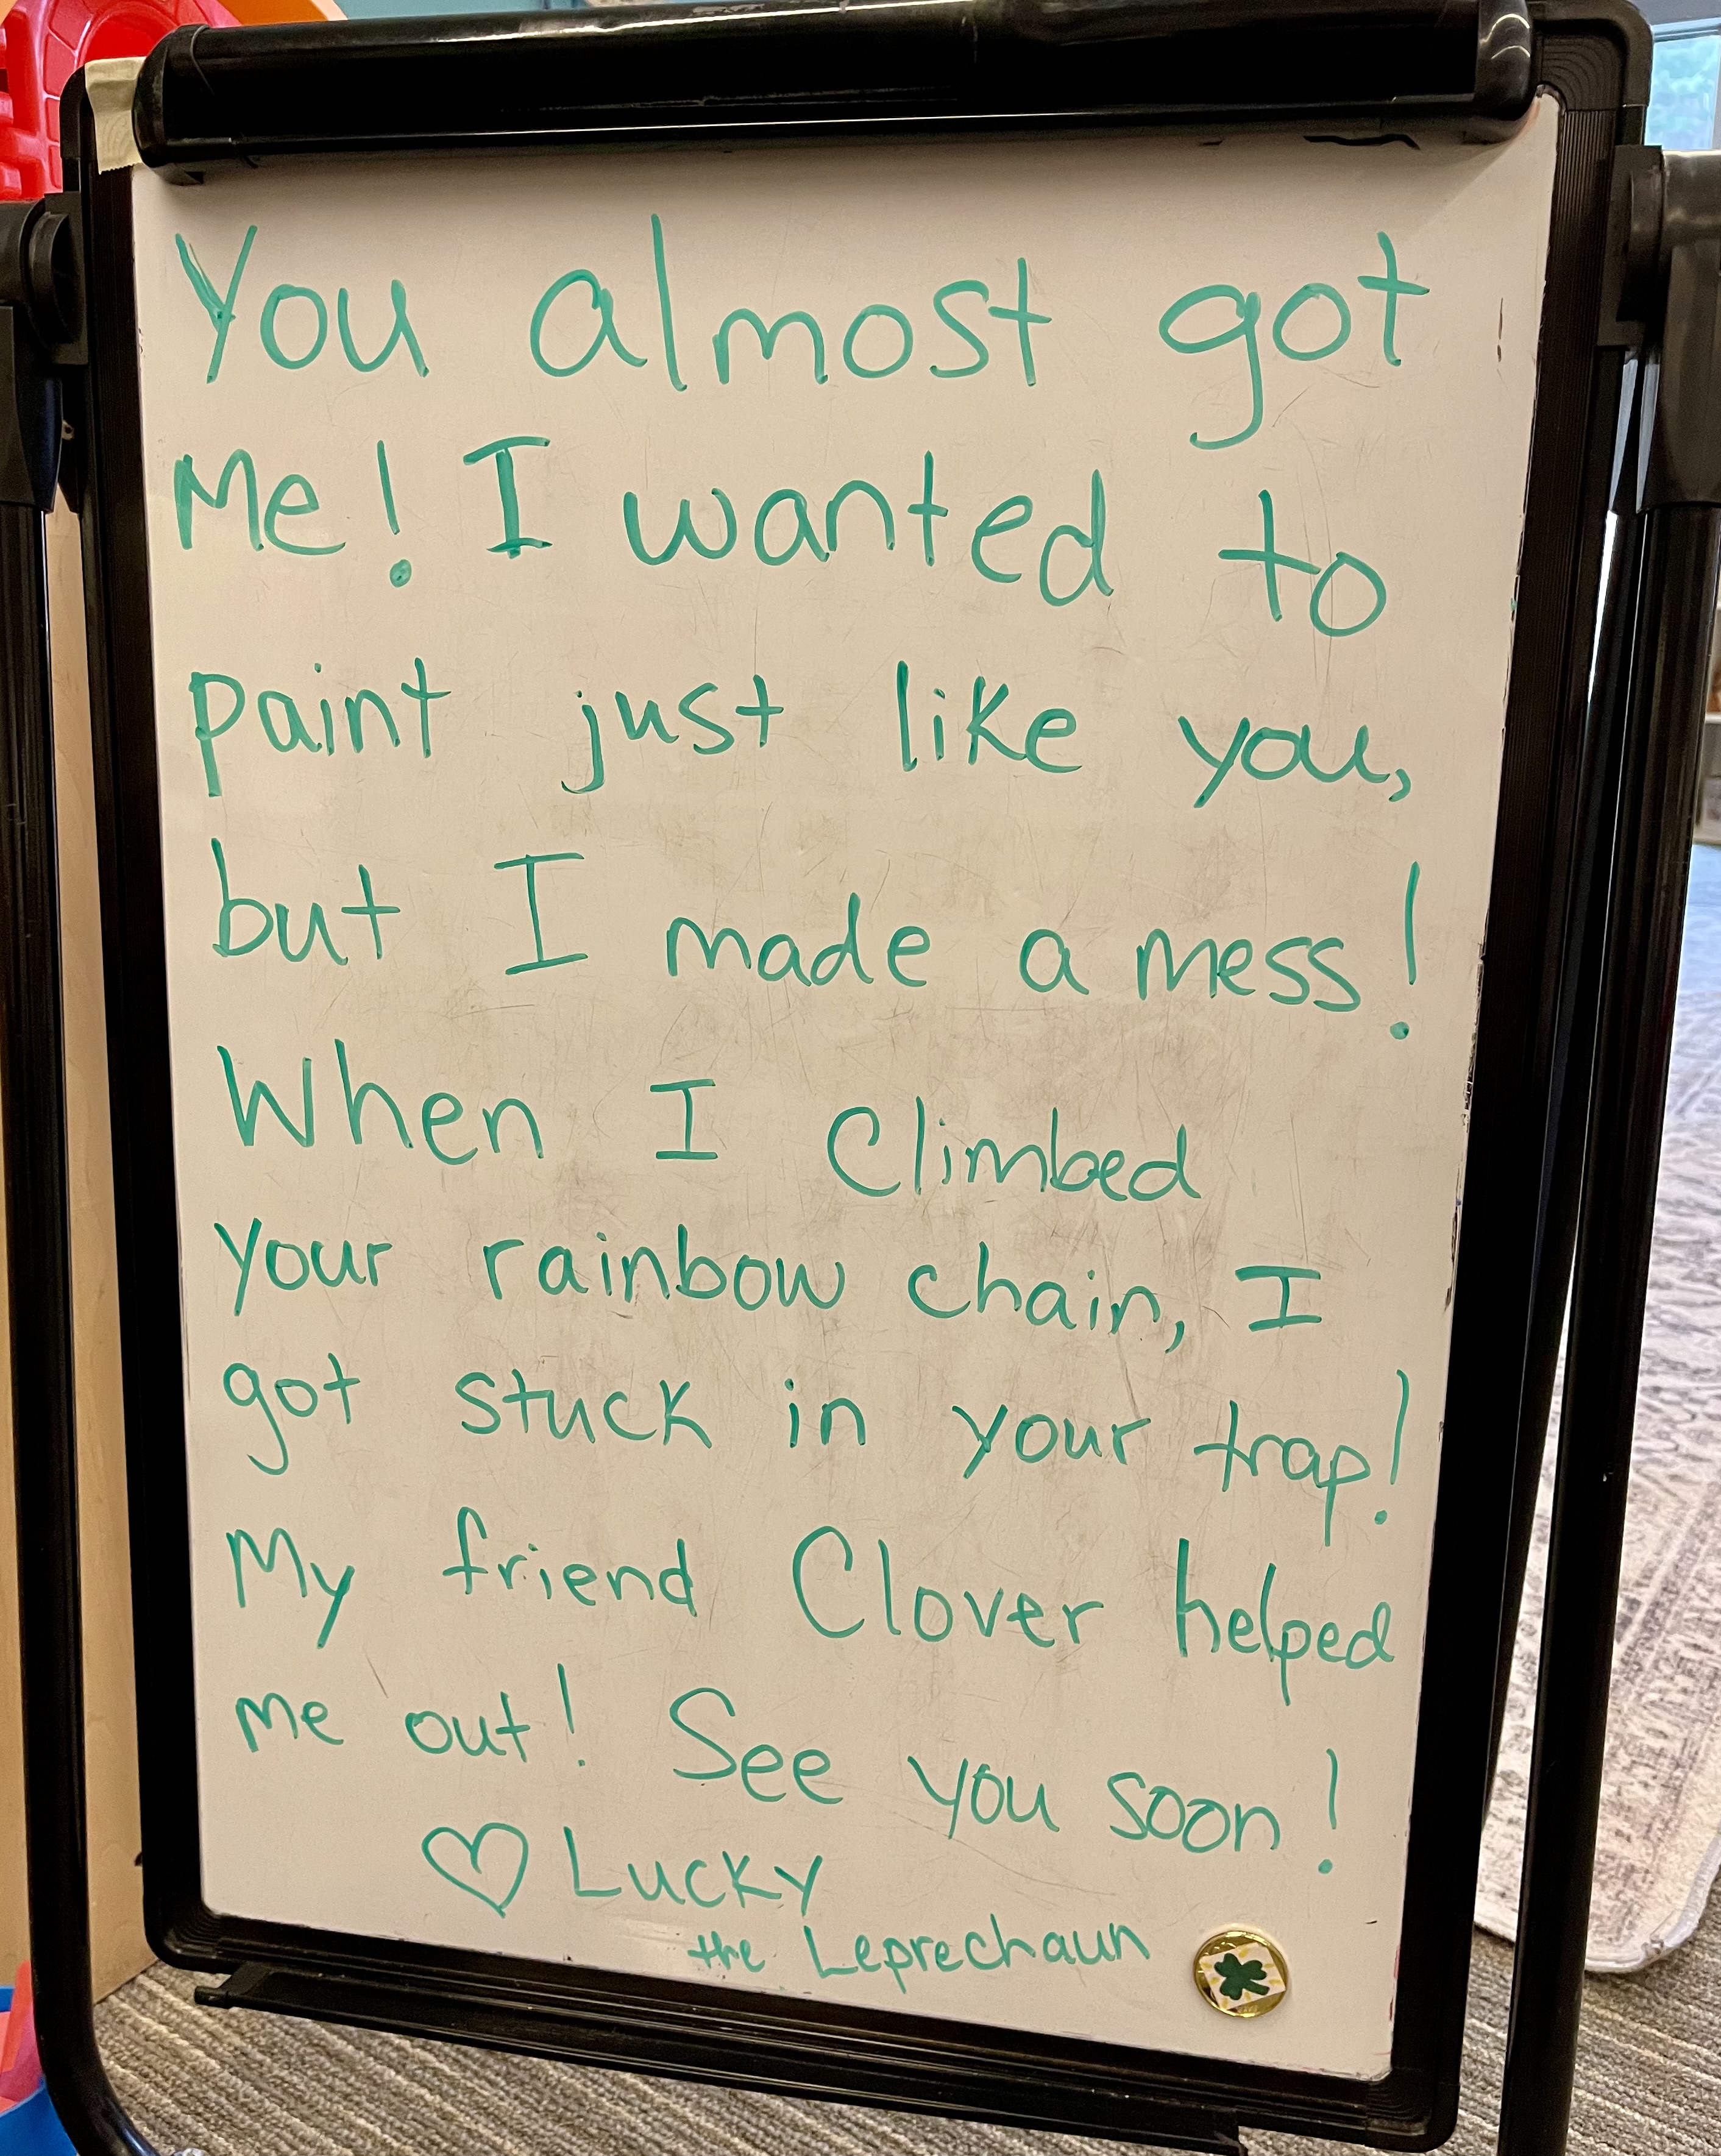 You almost got
Me! I wanted to
paint just like you,
but I made a mess!
When I Climbed
your rainbow chain, I
got stuck in your trap!
My friend Clover helped
me out! See you soon!
♡ Lucky
the Leprechaun